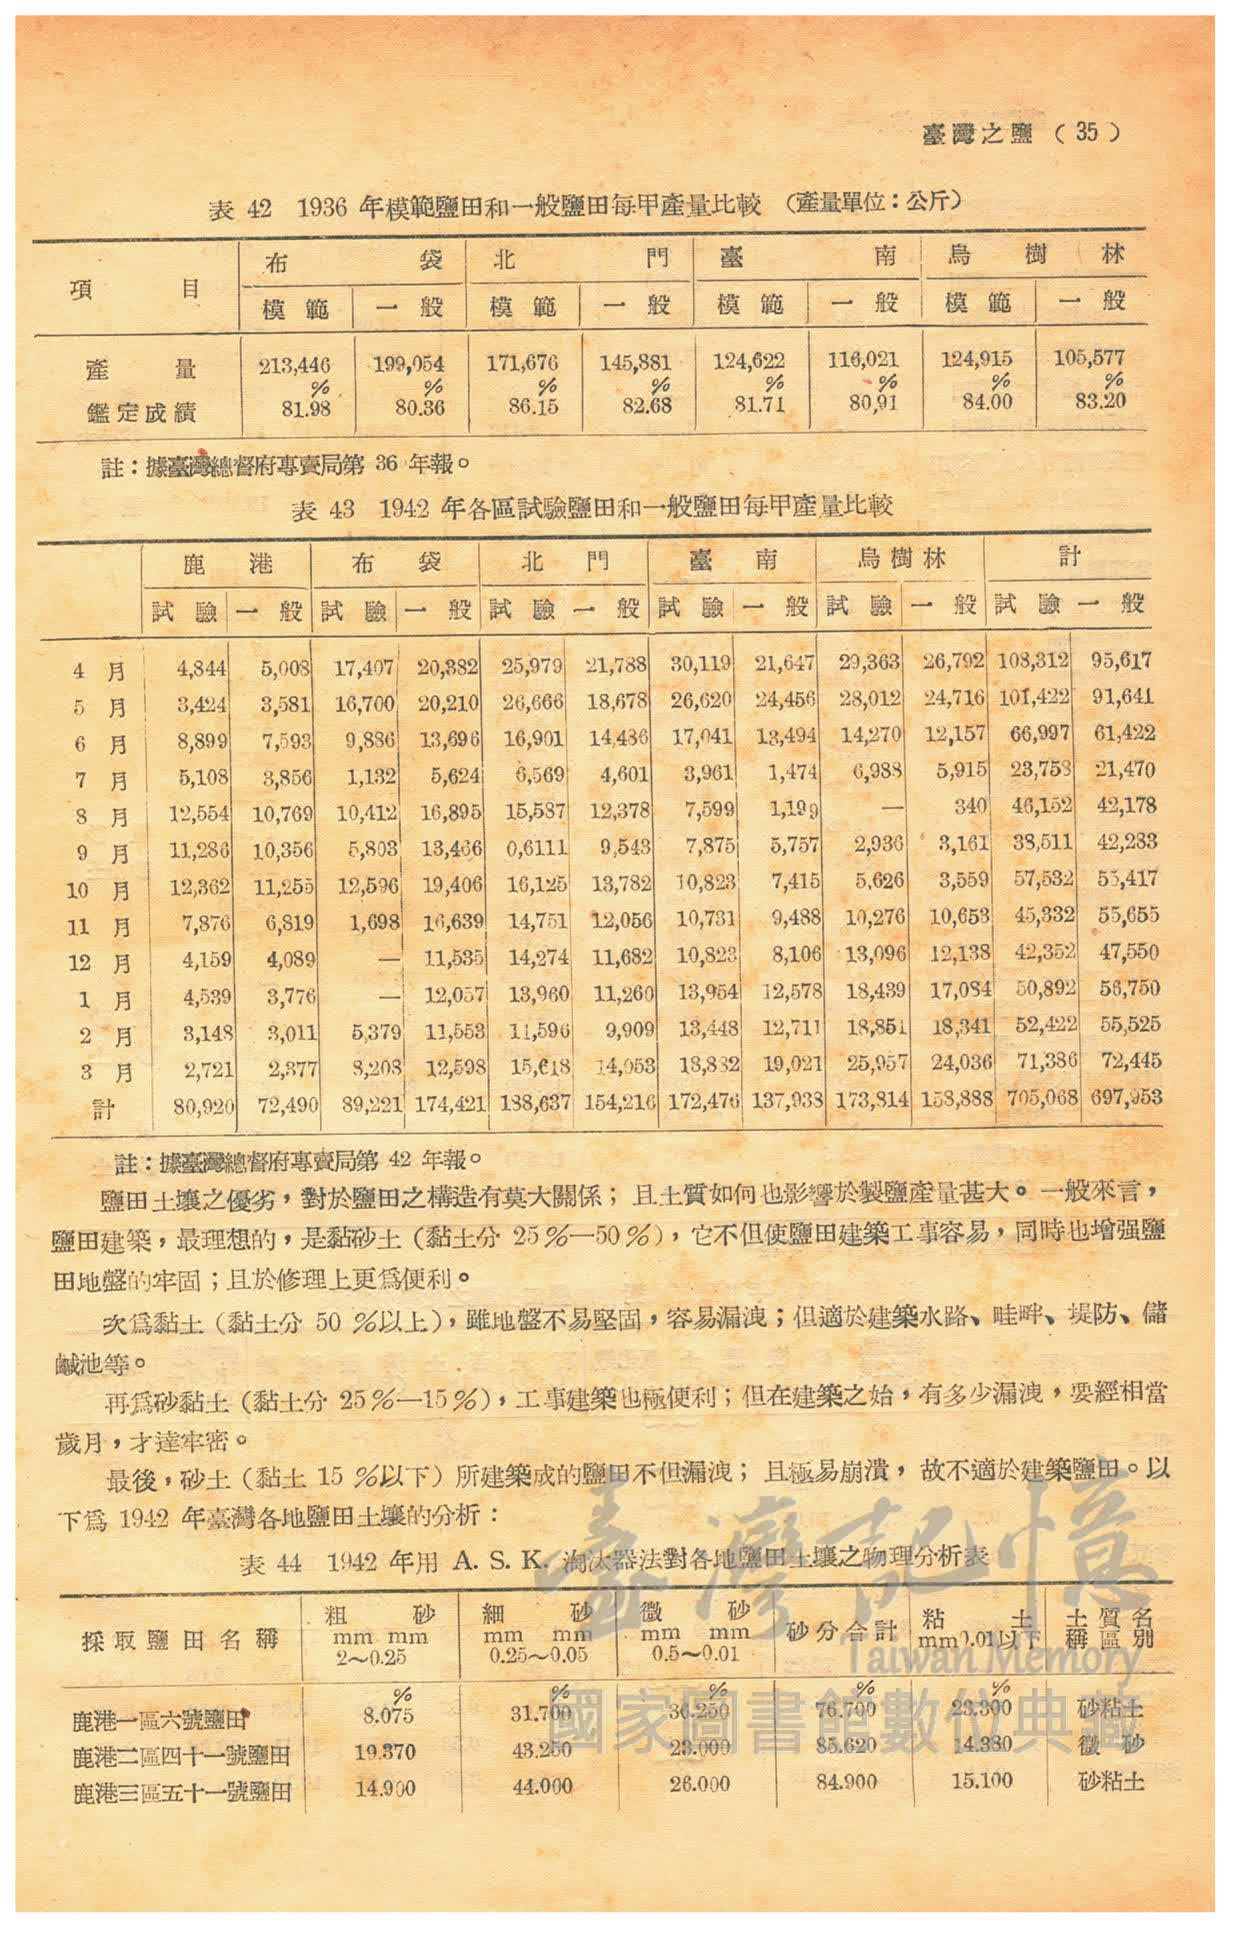 臺灣之鹽 ( 35 )
表 42 1936 年模範鹽田和一般鹽田每甲產量比較 (產量單位：公斤)
項 目 布 袋 北 門 臺 南 烏 樹 林
模 範 一 般 模 範 一 般 模 範 一 般 模 範 一 般
產 量 213,446 199,054 171,676 145,881 124,622 116,021 124,915 105,577
% % % % % % % %
鑑定成績 81.98 80.36 86.15 82.68 81.71 80,91 84.00 83.20
註：據臺灣總督府專賣局第 36 年報。
表 43 1942 年各區試驗鹽田和一般鹽田每甲產量比較
鹿 港 布 袋 北 門 臺 南 烏樹林 計
試 驗 一 般 試 驗 一 般 試 驗 一 般 試 驗 一 般 試 驗 一 般 試 驗 一 般
4 月 4,844 5,008 17,407 20,382 25,979 21,788 30,119 21,647 29,363 26,792 108,312 95,617
5 月 3,424 3,581 16,700 20,210 26,666 18,678 26,620 24,456 28,012 24,716 101,422 91,641
6 月 8,899 7,593 9,886 13,696 16,901 14,486 17,041 13,494 14,270 12,157 66,997 61,422
7 月 5,108 3,856 1,132 5,624 6,569 4,601 3,961 1,474 6,988 5,915 23,758 21,470
8 月 12,554 10,769 10,412 16,895 15,587 12,378 7,599 1,199 — 340 46,152 42,178
9 月 11,286 10,356 5,803 13,466 0,6111 9,543 7,875 5,757 2,936 3,161 38,511 42,283
10 月 12,362 11,255 12,596 19,406 16,125 13,782 10,823 7,415 5,626 3,559 57,532 55,417
11 月 7,876 6,819 1,698 16,639 14,751 12,056 10,731 9,488 10,276 10,653 45,332 55,655
12 月 4,159 4,089 — 11,535 14,274 11,682 10,823 8,106 13,096 12,138 42,352 47,550
1 月 4,539 3,776 — 12,057 13,960 11,260 13,954 12,578 18,439 17,084 50,892 56,750
2 月 3,148 3,011 5,379 11,553 11,596 9,909 13,448 12,711 18,851 18,341 52,422 55,525
3 月 2,721 2,377 8,208 12,598 15,618 14,053 18,882 19,021 25,957 24,036 71,386 72,445
計 80,920 72,490 89,221 174,421 188,637 154,216 172,476 137,938 173,814 158,888 705,068 697,953
註：據臺灣總督府專賣局第 42 年報。
鹽田土壤之優劣，對於鹽田之構造有莫大關係；且土質如何也影響於製鹽產量甚大。一般來言，
鹽田建築，最理想的，是黏砂土（黏土分 25%—50%），它不但使鹽田建築工事容易，同時也增强鹽
田地盤的牢固；且於修理上更爲便利。
次爲黏土（黏土分 50 %以上），雖地盤不易堅固，容易漏洩；但適於建築水路、畦畔、堤防、儲
鹹池等。
再爲砂黏土（黏土分 25%—15%），工事建築也極便利；但在建築之始，有多少漏洩，要經相當
歲月，才達牢密。
最後，砂土（黏土 15 %以下）所建築成的鹽田不但漏洩；且極易崩潰，故不適於建築鹽田。以
下爲 1942 年臺灣各地鹽田土壤的分析：
表 44 1942 年用 A. S. K. 淘汰器法對各地鹽田土壤之物理分析表
採取鹽田名稱 粗 砂 細 砂 微 砂 砂分合計 粘 土 土質名
mm mm mm mm mm mm mm0.01以下 稱區別
2～0.25 0.25～0.05 0.5～0.01
% % % % %
鹿港一區六號鹽田 8.075 31.700 36.250 76.700 23.300 砂粘土
鹿港二區四十一號鹽田 19.370 43.250 23.000 85.620 14.380 微 砂
鹿港三區五十一號鹽田 14.900 44.000 26.000 84.900 15.100 砂粘土
臺灣記憶
Taiwan Memory
國家圖書館數位典藏